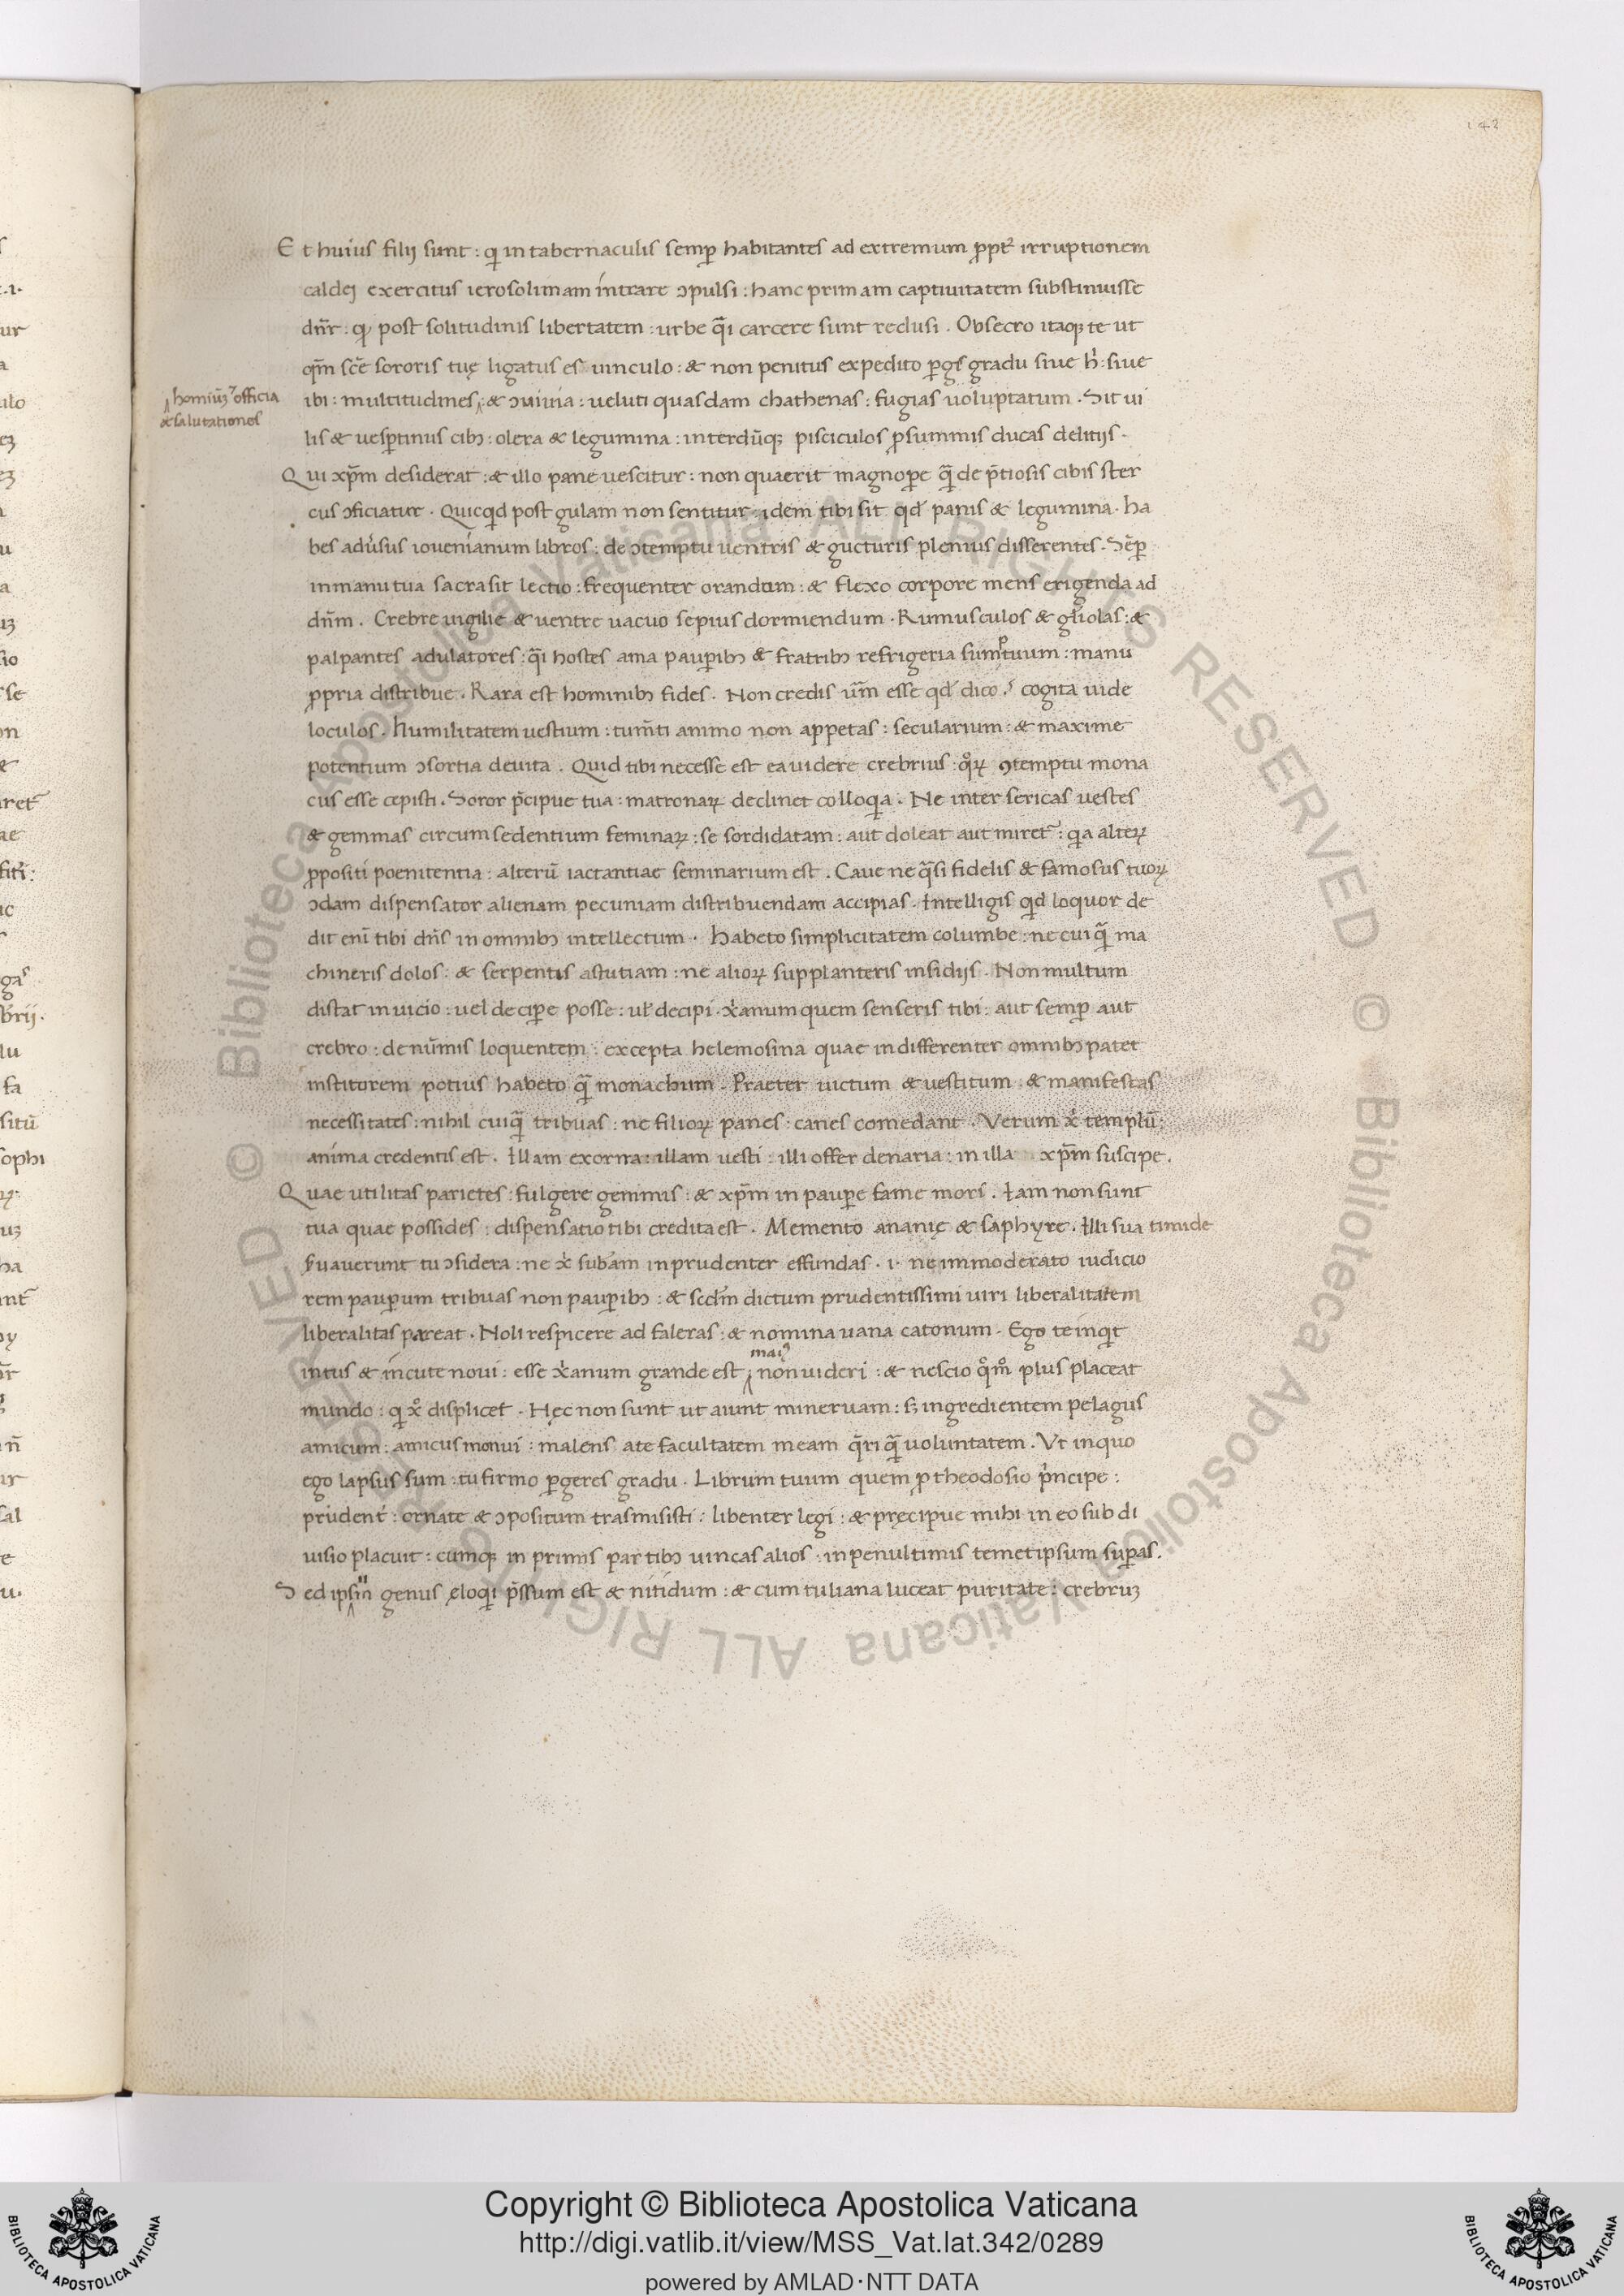 142
Et huius filij sunt : qi in tabernaculis semp̄ habitantes ad extremum ꝓpt̄ irruptionem
caldęj exercitus ierosolimam intrare ɔpulsi : hanc primam captiuitatem substinuisse
dn̄r : qꝫ post solitudinis libertatem : urbe q̄i carcere sunt reclusi . Obsecro itaqꝫ te ut
qm̄ sc̄e sororis tuę ligatus es uinculo : & non penitus expedito ꝑgis gradu siue h̓ : siue
homiūꝫ officia
& salutationes
ibi : multitudines : & ɔuiuia : ueluti quasdam chathenas : fugias uoluptatum . Sit ui
lis & uesꝑtinus cibꝫ : olera & legumina : interdūqꝫ pisciculos ꝓ summis ducas delitijs .
Qui xp̄m desiderat : & illo pane uescitur : non quaerit magnoꝑe q̄ de p̄tiosis cibis ster
cus ɔficiatur . Quicqd post gulam non sentitur : idem tibi sit qd̓ panis & legumina . Ha
bes adu̓sus iouenianum libros : de ɔtemptu uentris & gucturis plenius disserentes . Sēꝑ
in manu tua sacra sit lectio : frequenter orandum : & flexo corpore mens erigenda ad
dn̄m . Crebre uigilie & uentre uacuo sepius dormiendum . Rumusculos & gl̓iolas : &
palpantes adulatores : q̄i hostes ama pauꝑibꝫ & fratribꝫ refrigeria sumptuum : manu
ꝓpria distribue . Rara est hominibꝫ fides . Non credis um̄ esse qd̓ dico ? cogita iude
loculos . Humilitatem uestium : tum̄ti animo non appetas : secularium : & maxime
potentium ɔsortia deuita . Quid tibi necesse est ea uidere crebrius : qoꝝ ɔtemptu mona
cus esse cepisti . Soror p̄cipue tua : matronaꝝ declinet colloqia . Ne inter sericas uestes
& gemmas circum sedentium feminaꝝ : se sordidatam : aut doleat aut miret̄ : qa alteꝝ
ꝓpositi poenitentia : alterū iactantiae seminarium est . Caue ne q̄si fidelis & famosus tuoꝝ
ɔdam dispensator alienam pecuniam distribuendam accipias . Intelligis qid loquor de
dit enī tibi dn̄s in omnibꝫ intellectum . Habeto simplicitatem columbe : ne cui q̄ ma
chineris dolos : & serpentis astutiam : ne alioꝝ supplanteris insidijs . Non multum
distat in uicio : uel deciꝑe posse : ul̓ decipi . x̓anum quem senseris tibi : aut semꝑ aut
crebro : de nūmis loquentem : excepta helemosina quae indifferenter omnibꝫ patet
institorem potius habeto q̄ monachum . Praeter uictum & uestitum & manifestas
necessitates : nihil cuiq̄ tribuas : ne filioꝝ panes : canes comedant . Verum x̓ templū :
anima credentis est . Illam exorna : illam uesti : illi offer denaria : in illa xp̄m suscipe .
Quae utilitas parietes : fulgere gemmis : & xp̄m in pauꝑe fame mori . Iam non sunt
tua quae possides : dispensatio tibi credita est . Memento ananię & saphyre . Illi sua timide
s̓uauerunt tu ɔsidera : ne x̓ sub̄am inprudenter effundas . i . ne immoderato iudicio
rem pauꝑum tribuas non pauꝑibꝫ : & secd̄m dictum prudentissimi uiri liberalitatem
liberalitas pareat . Noli respicere ad faleras : & nomina uana catonum . Ego te inqit
maiꝰ
intus & in cute noui : esse x̓anum grande est : non uideri : & nescio qoმo plus placeat
mundo : qi xo displicet . Hęc non sunt ut aiunt mineruam : s; ingredientem pelagus
amicum : amicus monui : malens a te facultatem meam q̄ri q̄ uoluntatem . Vt in quo
ego lapsus sum : tu firmo ꝑgeres gradu . Librum tuum quem ꝓ theodosio p̓ncipe :
prudent̓ : ornate & ɔpositum trasmisisti : libenter legi : & pręcipue mihi in eo sub di
uisio placuit : cumqꝫ in primis partibꝫ uincas alios : in penultimis temetipsum suꝑas .
Sed ipsm̄ genus eloqi p̄ssum est & nitidum : & cum tuliana luceat puritate : crebruꝫ
Copyright © Biblioteca Apostolica Vaticana
http://digi.vatlib.it/view/MSS_Vat.lat.342/0289
powered by AMLAD·NTT DATA
BIBLIOTECA APOSTOLICA VATICANA
BIBLIOTECA APOSTOLICA VATICANA
© Biblioteca Apostolica Vaticana ALL RIGHTS RESERVED © Biblioteca Apostolica Vaticana ALL RIGHTS RESERVED